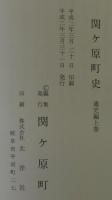 関ケ原町史　通史編上巻
平成二年三月二十日　印刷
平成二年三月三十一日　発行
©編集
発行　関ケ原町
印刷　株式会社　太洋社